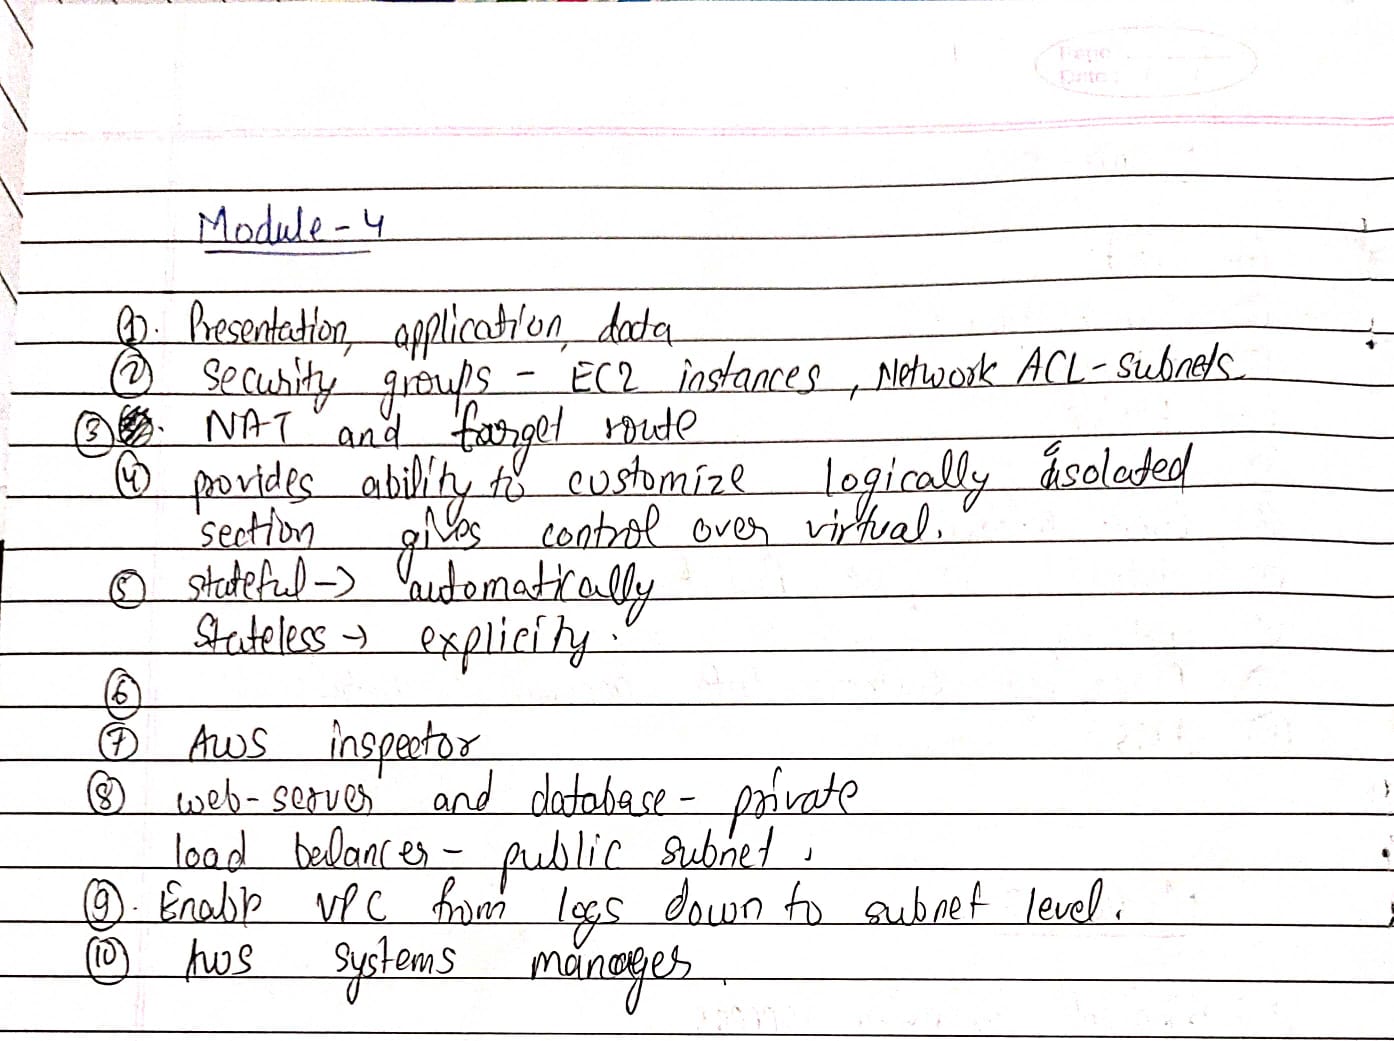 Page
Date:
Module-4
①. Presentation, application, data
② Security groups - EC2 instances, Network ACL - subnets
③. NAT and target route
④ provides ability to customize logically isolated
section gives control over virtual.
⑤ stateful → automatically
Stateless → explicity.
⑥
⑦ AWS inspector
⑧ web-server and database - private
load balancer - public subnet.
⑨. Enable VPC from logs down to subnet level.
⑩ Aws systems manager